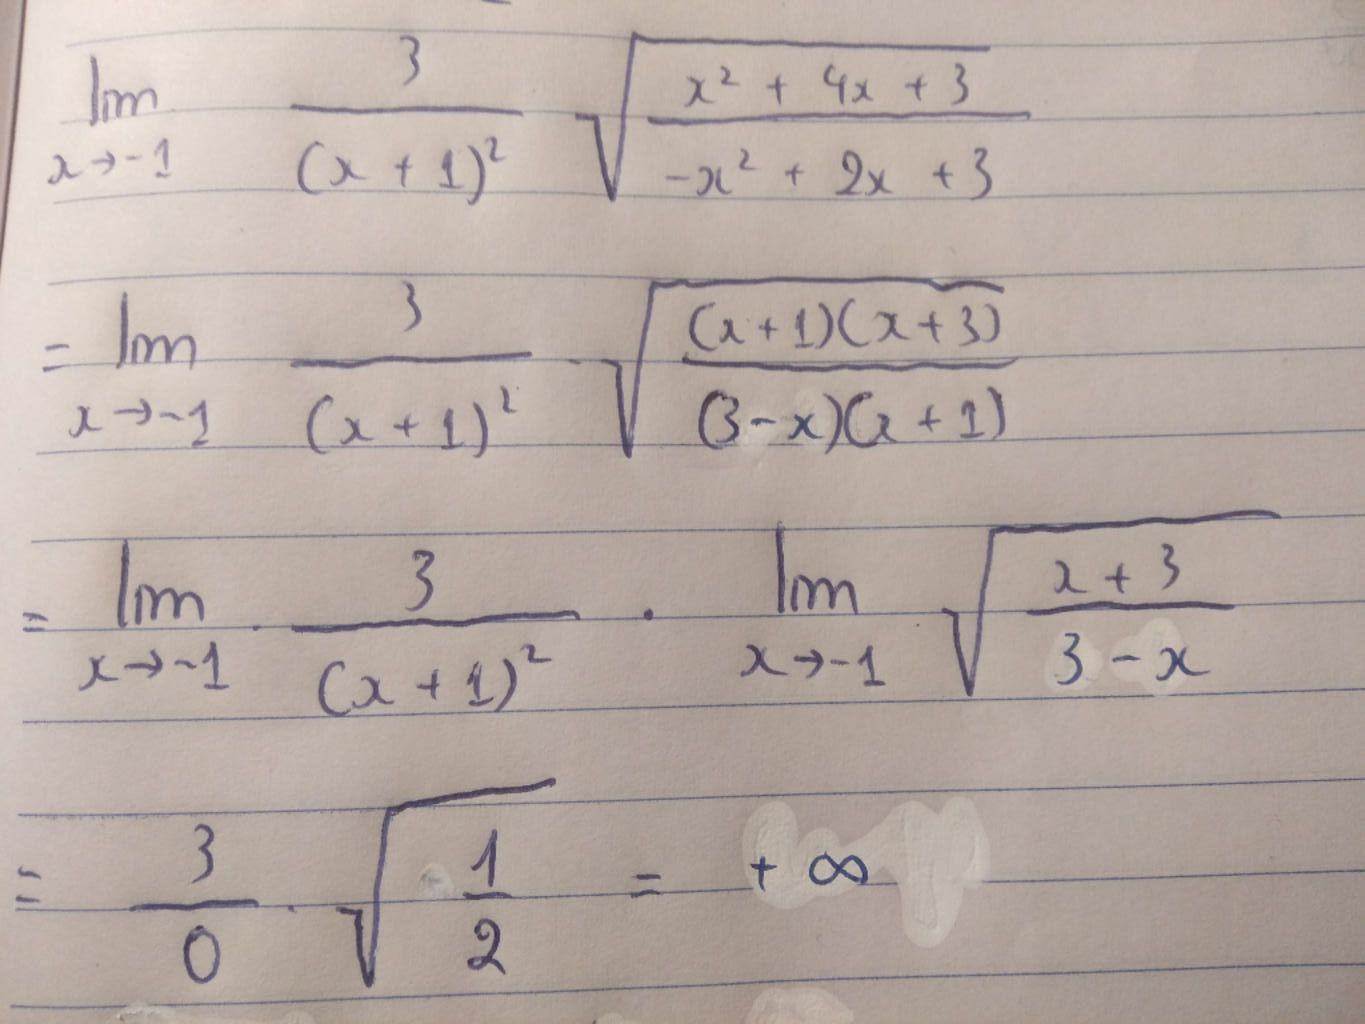 lim x→-1 3/(x+1)² √((x²+4x+3)/(-x²+2x+3))
= lim x→-1 3/(x+1)² · √(((x+1)(x+3))/((3-x)(x+1)))
= lim x→-1 · 3/(x+1)² · lim x→-1 √((x+3)/(3-x))
= 3/0 · √(1/2) = +∞